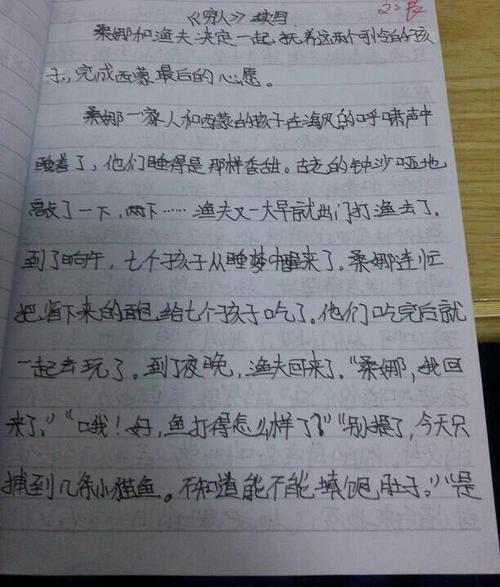 《穷人》续写
桑娜和渔夫决定一起抚养这两个可怜的孩
子,完成西蒙最后的心愿。
桑娜一家人和西蒙的孩子在海风的呼啸声中
睡着了,他们睡得是那样香甜。古老的钟沙哑地
敲了一下,两下……渔夫又一大早就出门打渔去了。
到了晌午,七个孩子从睡梦中醒来了。桑娜连忙
把省下来的面包给七个孩子吃了。他们吃完后就
一起去玩了。到了夜晚,渔夫回来了。“桑娜,我回
来了。”“哦!好,鱼打得怎么样了?”“别提了,今天只
捕到几条小猫鱼。不知道能不能填饱肚子。”“是